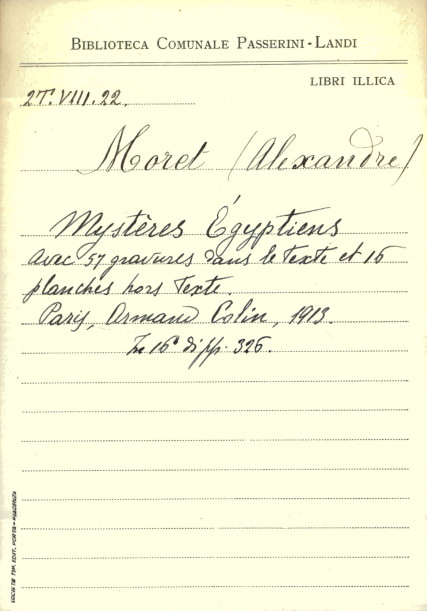 BIBLIOTECA COMUNALE PASSERINI-LANDI
LIBRI ILLICA
2T.VIII.22.
Moret (Alexandre)
Mystères Égyptiens
Avec 57 gravures dans le texte et 16
planches hors Texte.
Paris, Armand Colin, 1913.
In 16° di pp. 326.
SOCIETÀ TIP. EDIT. PORTA - PIACENZA